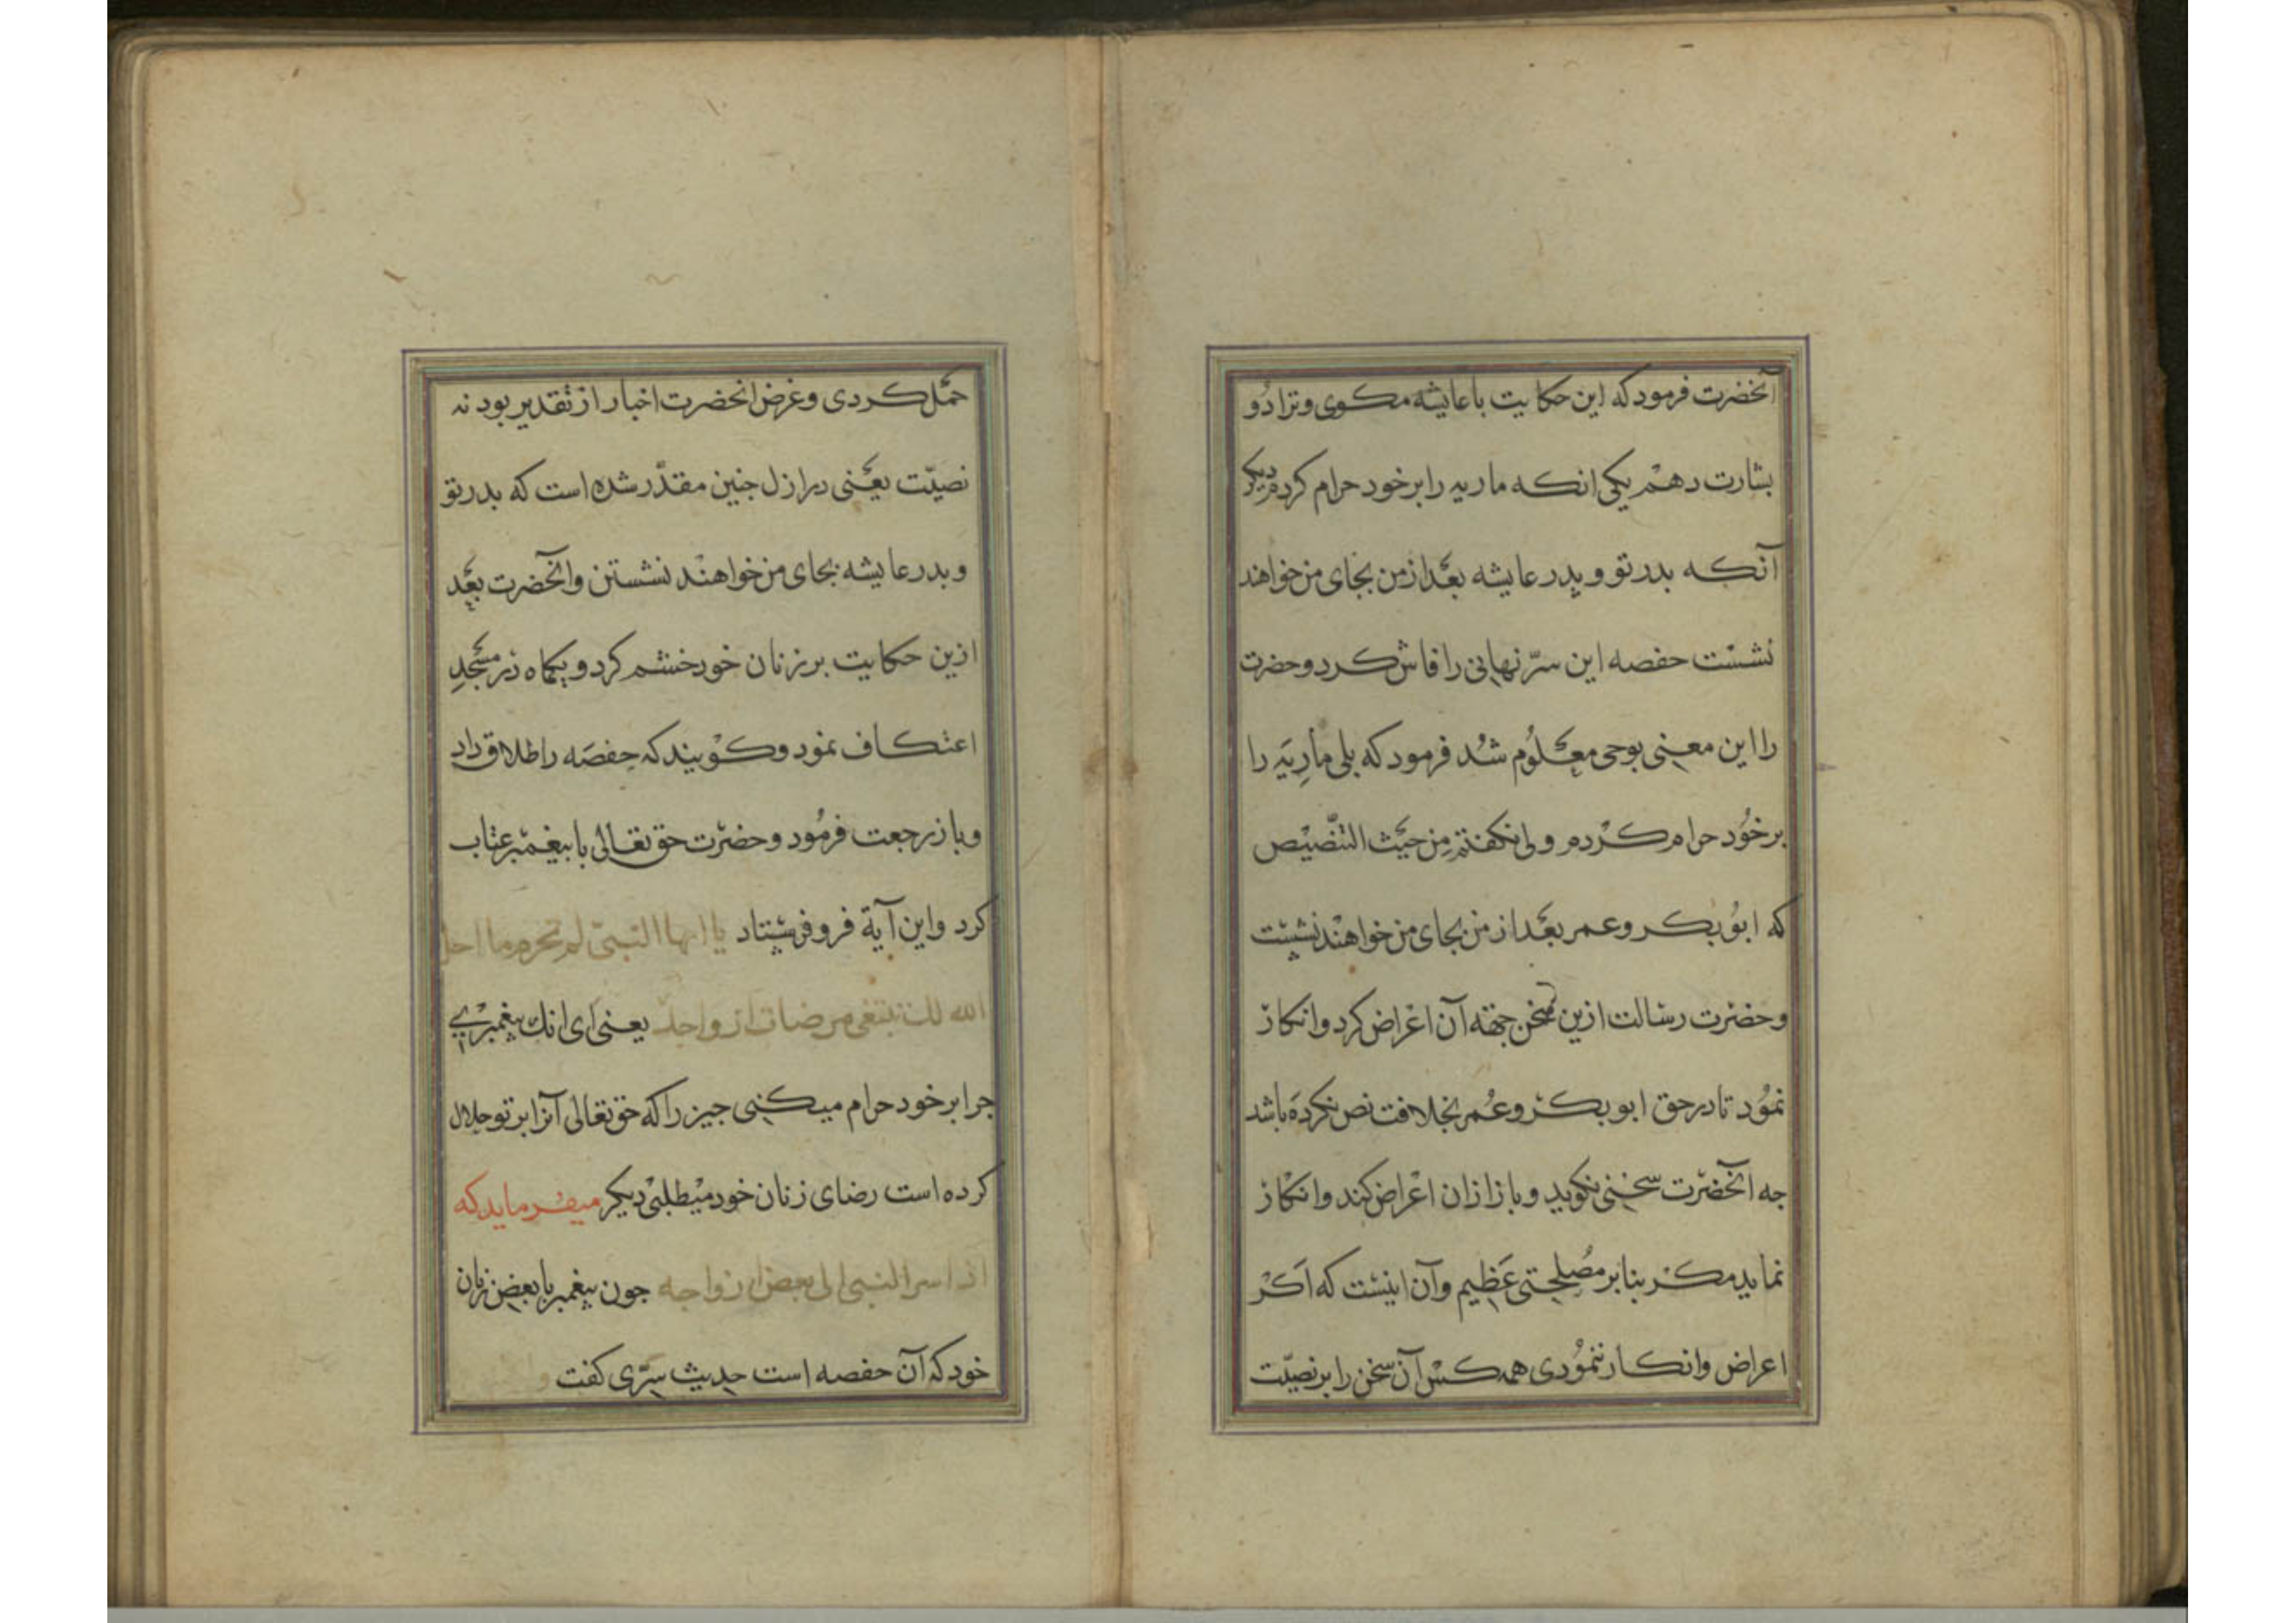 آنحضرت فرمود که این حکایت با عایشه مکوی و ترا دو
بشارت دهم یکی انکه ماریه را بر خود حرام کردم دیکر
آنکه بدر تو و پدر عایشه بعد از من بجای من خواهند
نشست حفصه این سرّ نهانی را فاش کرد و حضرت
را این معنی بوحی معلوم شد فرمود که بلی ماریه را
بر خود حرام کردم ولی نکفتم من حیث التنصیص
که ابوبکر و عمر بعد از من بجای من خواهند نشست
و حضرت رسالت ازین سخن جهته آن اعراض کرد و انکار
نمود تا در حق ابوبکر و عمر بخلافت نص نکرده باشد
جه آنحضرت سخنی نکوید و باز ازان اعراض کند و انکار
نماید مکر بنابر مصلحتی عظیم و آن اینست که اکر
اعراض و انکار ننمودی همه کس آن سخن را بر نصیّت
حمل کردی و غرض انحضرت اخبار از تقدیر بود نه
نصیّت یعنی در ازل جنین مقدّر شده است که بدر تو
و بدر عایشه بجای من خواهند نشستن و آنحضرت بعد
ازین حکایت بر زنان خود خشم کرد و یکماه در مسجد
اعتکاف نمود و کویند که حفصه را طلاق داد
و باز رجعت فرمود و حضرت حق تعالی با بیغمبر عتاب
کرد و این آیة فرو فرستاد یا ایها النبی لم تحرم ما احل
الله لک تبتغی مرضات ازواجک یعنی ای انک پیغمبری
جرا بر خود حرام میکنی جیز را که حق تعالی آنرا بر تو حلال
کرده است رضای زنان خود میطلبی دیکر میفرماید که
اذ اسر النبی الی بعض ازواجه جون پیغمبر با بعض زنان
خود که آن حفصه است حدیث سرّی کفت